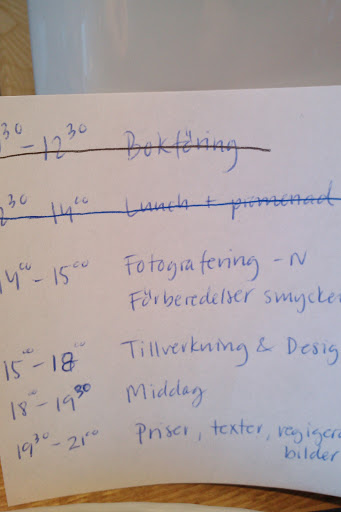 30 - 12 30 Bokföring
2 30 - 14 00 Lunch + promenad
14 00 - 15 00 Fotografering - N
Förberedelser smycken
15 00 - 18 00 Tillverkning & Desig
18 00 - 19 30 Middag
19 30 - 21 00 Priser, texter, regigera
bilder